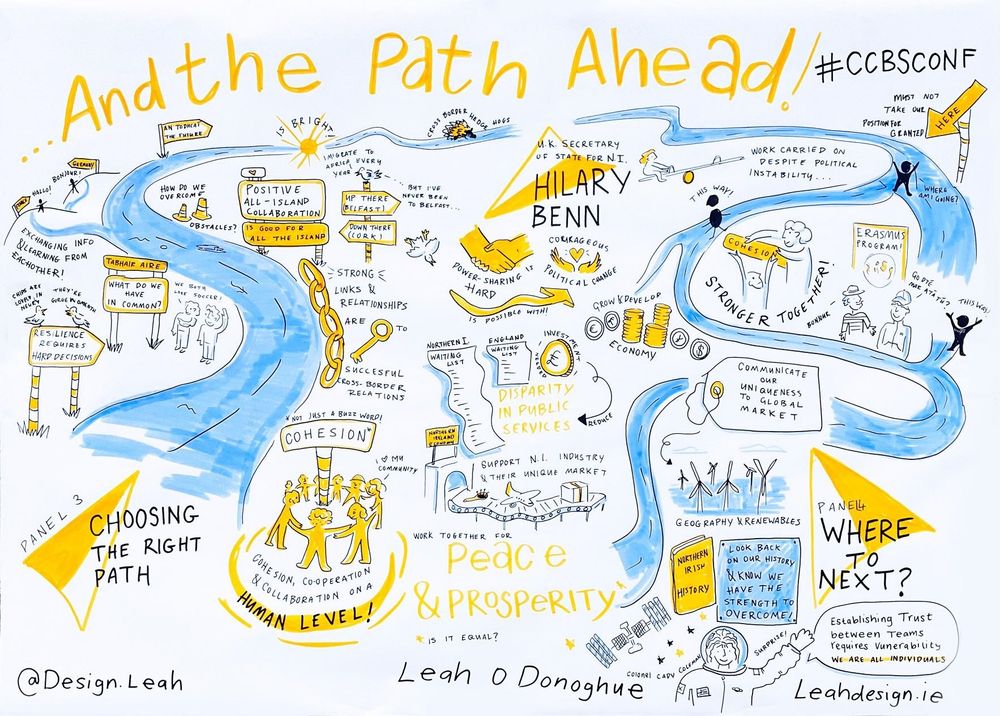 ....And the Path Ahead!
#CCBSCONF
MUST NOT
TAKE OUR
POSITION FOR
GRANTED
HERE
AN TODHCAÍ
THE FUTURE
IS BRIGHT
CROSS BORDER HEDGE HOGS
GERMANY
HALLO!
BONJOUR!
EXCHANGING INFO
& LEARNING FROM
EACHOTHER!
HOW DO WE
OVERCOME
OBSTACLES?
POSITIVE
ALL-ISLAND
COLLABORATION
IS GOOD FOR
ALL THE ISLAND
I MIGRATE TO
AFRICA EVERY
YEAR
BUT I'VE
NEVER BEEN
TO BELFAST...
UP THERE
(BELFAST)
DOWN THERE
(CORK)
TABHAIR AIRE
WHAT DO WE
HAVE
IN COMMON?
WE BOTH
LOVE SOCCER!
CHIPS ARE
LOVELY IN
NEWRY
THEY'RE
IN OMEATH
RESILIENCE
REQUIRES
HARD DECISIONS
STRONG
LINKS &
RELATIONSHIPS
ARE
TO
SUCCESFUL
CROSS-BORDER
RELATIONS
*NOT JUST A BUZZ WORD!
COHESION*
I MY
COMMUNITY
COHESION, CO-OPERATION
& COLLABORATION ON A
HUMAN LEVEL!
PANEL 3
CHOOSING
THE RIGHT
PATH
U.K. SECRETARY
OF STATE FOR N.I.
HILARY
BENN
POWER-SHARING IS
HARD
IS POSSIBLE WITH!
COURAGEOUS
POLITICAL CHANGE
GROW & DEVELOP
ECONOMY
NORTHERN I.
WAITING
LIST
ENGLAND
WAITING
LIST
INVESTMENT
REDUCE
DISPARITY
IN PUBLIC
SERVICES
NORTHERN
IRELAND
ECONOMY
SUPPORT N.I. INDUSTRY
& THEIR UNIQUE MARKET
WORK TOGETHER FOR
Peace
& PROSPERITY
*IS IT EQUAL?
WORK CARRIED ON
DESPITE POLITICAL
INSTABILITY...
THIS WAY!
WHERE
AM I GOING?
COHESION
STRONGER TOGETHER!
ERASMUS
PROGRAM!
BONJOUR
THIS WAY!
COMMUNICATE
OUR
UNIQUENESS
TO GLOBAL
MARKET
GEOGRAPHY & RENEWABLES
NORTHERN
IRISH
HISTORY
LOOK BACK
ON OUR HISTORY
& KNOW WE
HAVE THE
STRENGTH TO
OVERCOME!
PANEL 4
WHERE
TO
NEXT?
COLONEL CADY COLEMAN
SURPRISE!
Establishing Trust
between Teams
requires Vunerability
WE ARE ALL INDIVIDUALS
@Design.Leah
Leah O Donoghue
Leahdesign.ie